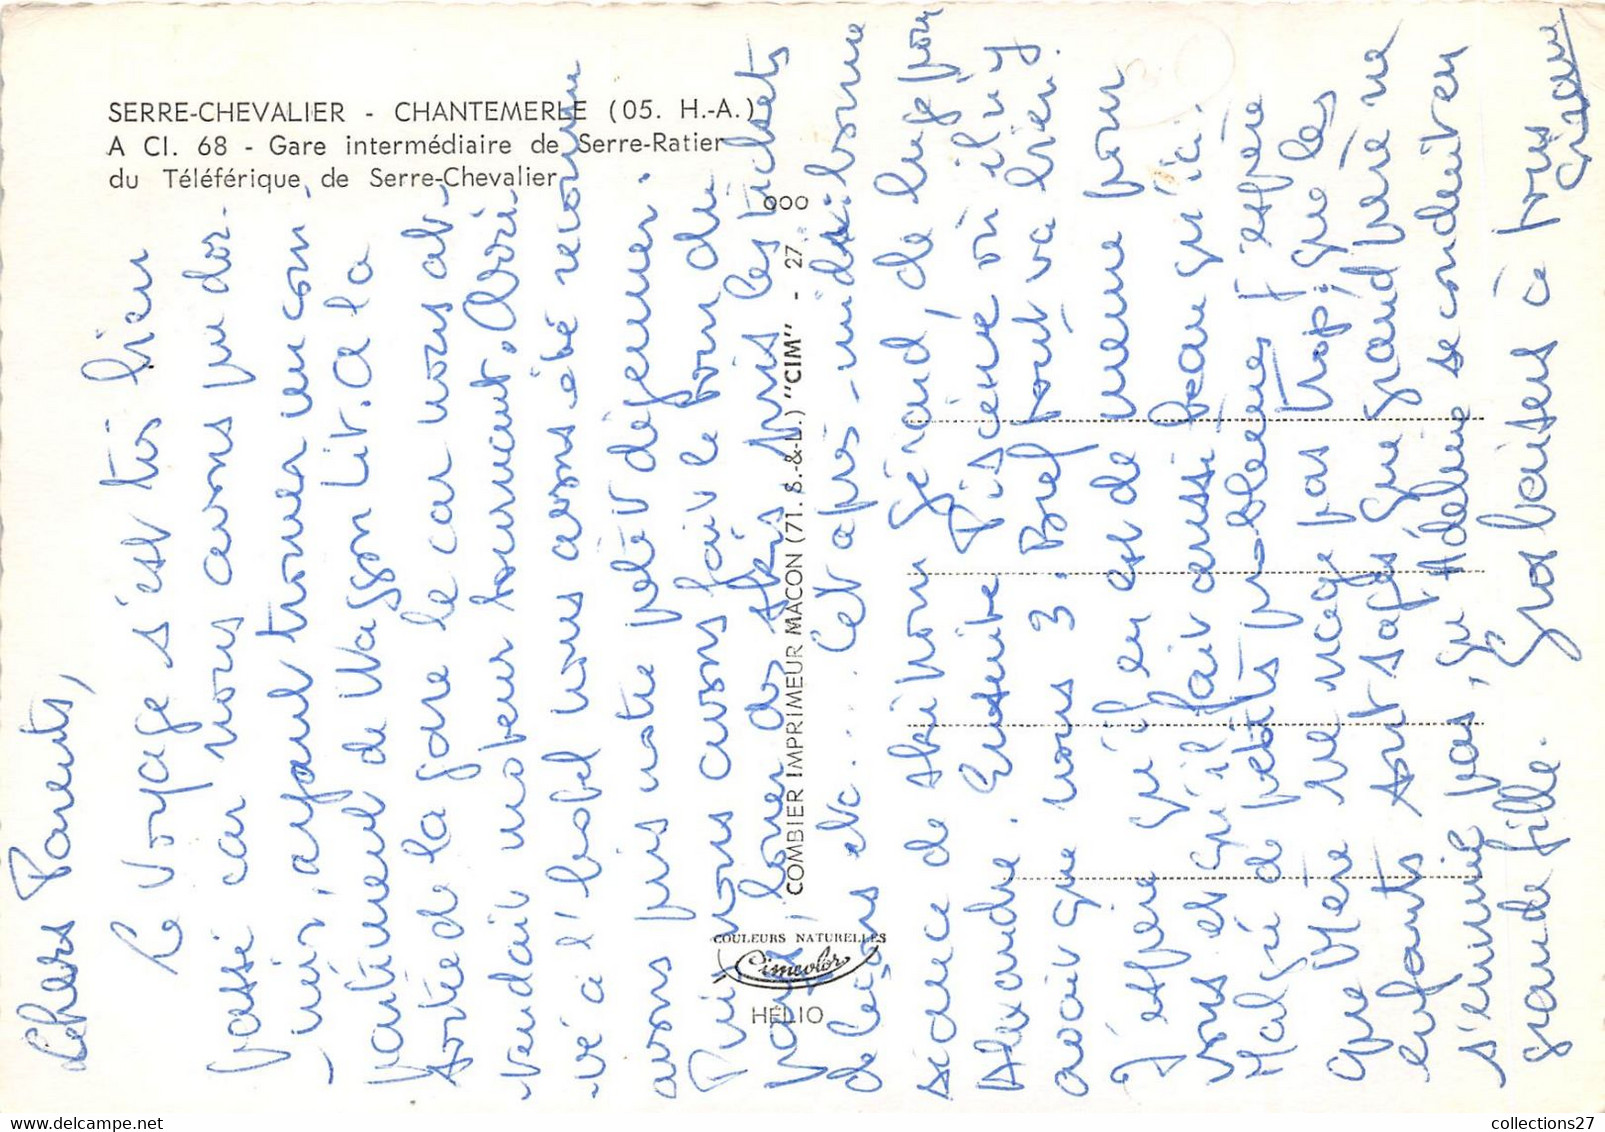 SERRE-CHEVALIER - CHANTEMERLE (05. H.-A.)
A Cl. 68 - Gare intermédiaire de Serre-Ratier
du Téléférique de Serre-Chevalier
000
COMBIER IMPRIMEUR MACON (71. S.-&-L.) "CIM" - 27
COULEURS NATURELLES
Cimcolor
HÉLIO
Chers Parents,
Le voyage s'est très bien
passé car nous avons pu dor-
mir, ayant trouver un com-
partiment de Wagson Lit. A la
sortie de la gare le car nous at-
tendait moteur tournant. Arri-
vé à l'hotel nous avons été
avons pris notre petit déjeuner.
Puis nous avons fait le tour du
pays, louer des skis pris les tickets
de leçons etc... Cet après-midi bonne
séance de ski pour Gérard, de luge pour
Alexandre. Ensuite Piscine où il n'y
avait que nous 3. Bref tout va bien.
J'espère qu'il en est de meme pour
vous et qu'il fait aussi beau qu'ici.
Malgré de petits problèmes j'espère
que Mère ne rage pas trop, que les
enfants sont sages que grand père ne
s'ennuie pas, qu'Adeline se conduit en
grande fille. Gros baisers à tous
collections27